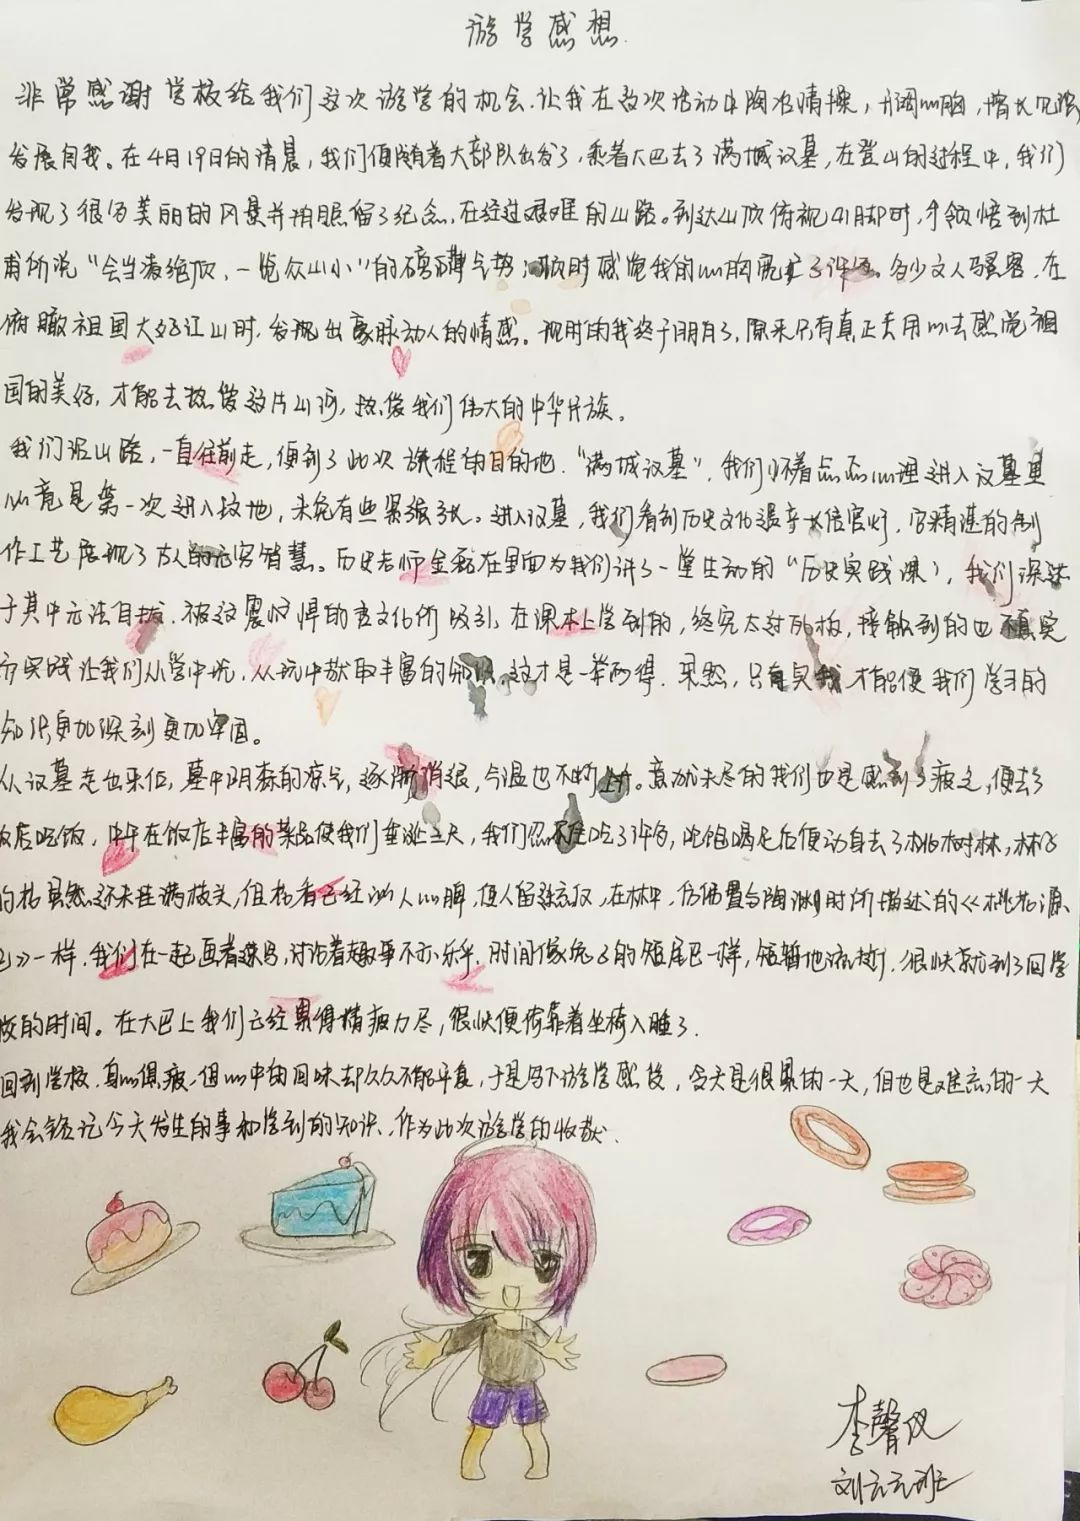 游学感想.
非常感谢学校给我们这次游学的机会.让我在这次活动中陶冶情操,开阔心胸,增长见识
发展自我。在4月19日的清晨,我们便随着大部队出发了,乘着大巴去了满城汉墓,在登山的过程中,我们
发现了很多美丽的风景并拍照留了纪念,在经过艰难的山路。到达山顶俯视山脚时,才领悟到杜
甫所说“会当凌绝顶,一览众山小”的磅礴气势;顿时感觉我的心胸宽广了许多。多少文人骚客,在
俯瞰祖国大好江山时,发现出豪脉动人的情感。现时的我终于明白了,原来只有真正去用心去感觉祖
国的美好,才能去热爱这片山河,热爱我们伟大的中华民族。
我们沿山路,一直往前走,便到了此次旅程的目的地.“满城汉墓”,我们怀着忐忑心理进入汉墓里
必竟是第一次进入坟地,未免有些紧张。进入汉墓,我们看到历史文化遗产长信宫灯,它精湛的制
作工艺展现了古人的无穷智慧。历史老师在里面为我们讲了一堂生动的“历史实践课),我们深迷
于其中无法自拔.被这震惊悍的古文化所吸引,在课本上学到的,终究太过死板,接触到的也不真实
而实践让我们从学中玩,从玩中获取丰富的知识.这才是一举两得.果然,只有实践才能使我们学习的
知识更加深刻更加牢固。
从汉墓走出来后,墓中阴森的凉气,逐渐消退,气温也不断上升。意犹未尽的我们也是感到了疲乏,便去了
饭店吃饭,中午在饭店丰富的菜品使我们垂涎三尺,我们忍不住吃了许多,吃饱喝足后便动身去了桃树林,林子
的花虽然还未挂满枝头,但花香已经沁人心脾,使人留连忘返,在林中,仿佛置身陶渊明时所描述的《桃花源
记》一样,我们在一起画着速写,讨论着趣事不亦乐乎,时间像兔子的短尾巴一样,短暂地流逝,很快就到了回学
校的时间。在大巴上我们已经累得精疲力尽,很快便倚靠着坐椅入睡了.
回到学校.身心俱疲,但心中的回味却久久不能平复,于是写下游学感受,今天是很累的一天,但也是难忘的一天
我会铭记今天发生的事和学到的知识.作为此次游学的收获.
李馨仪
刘云云班